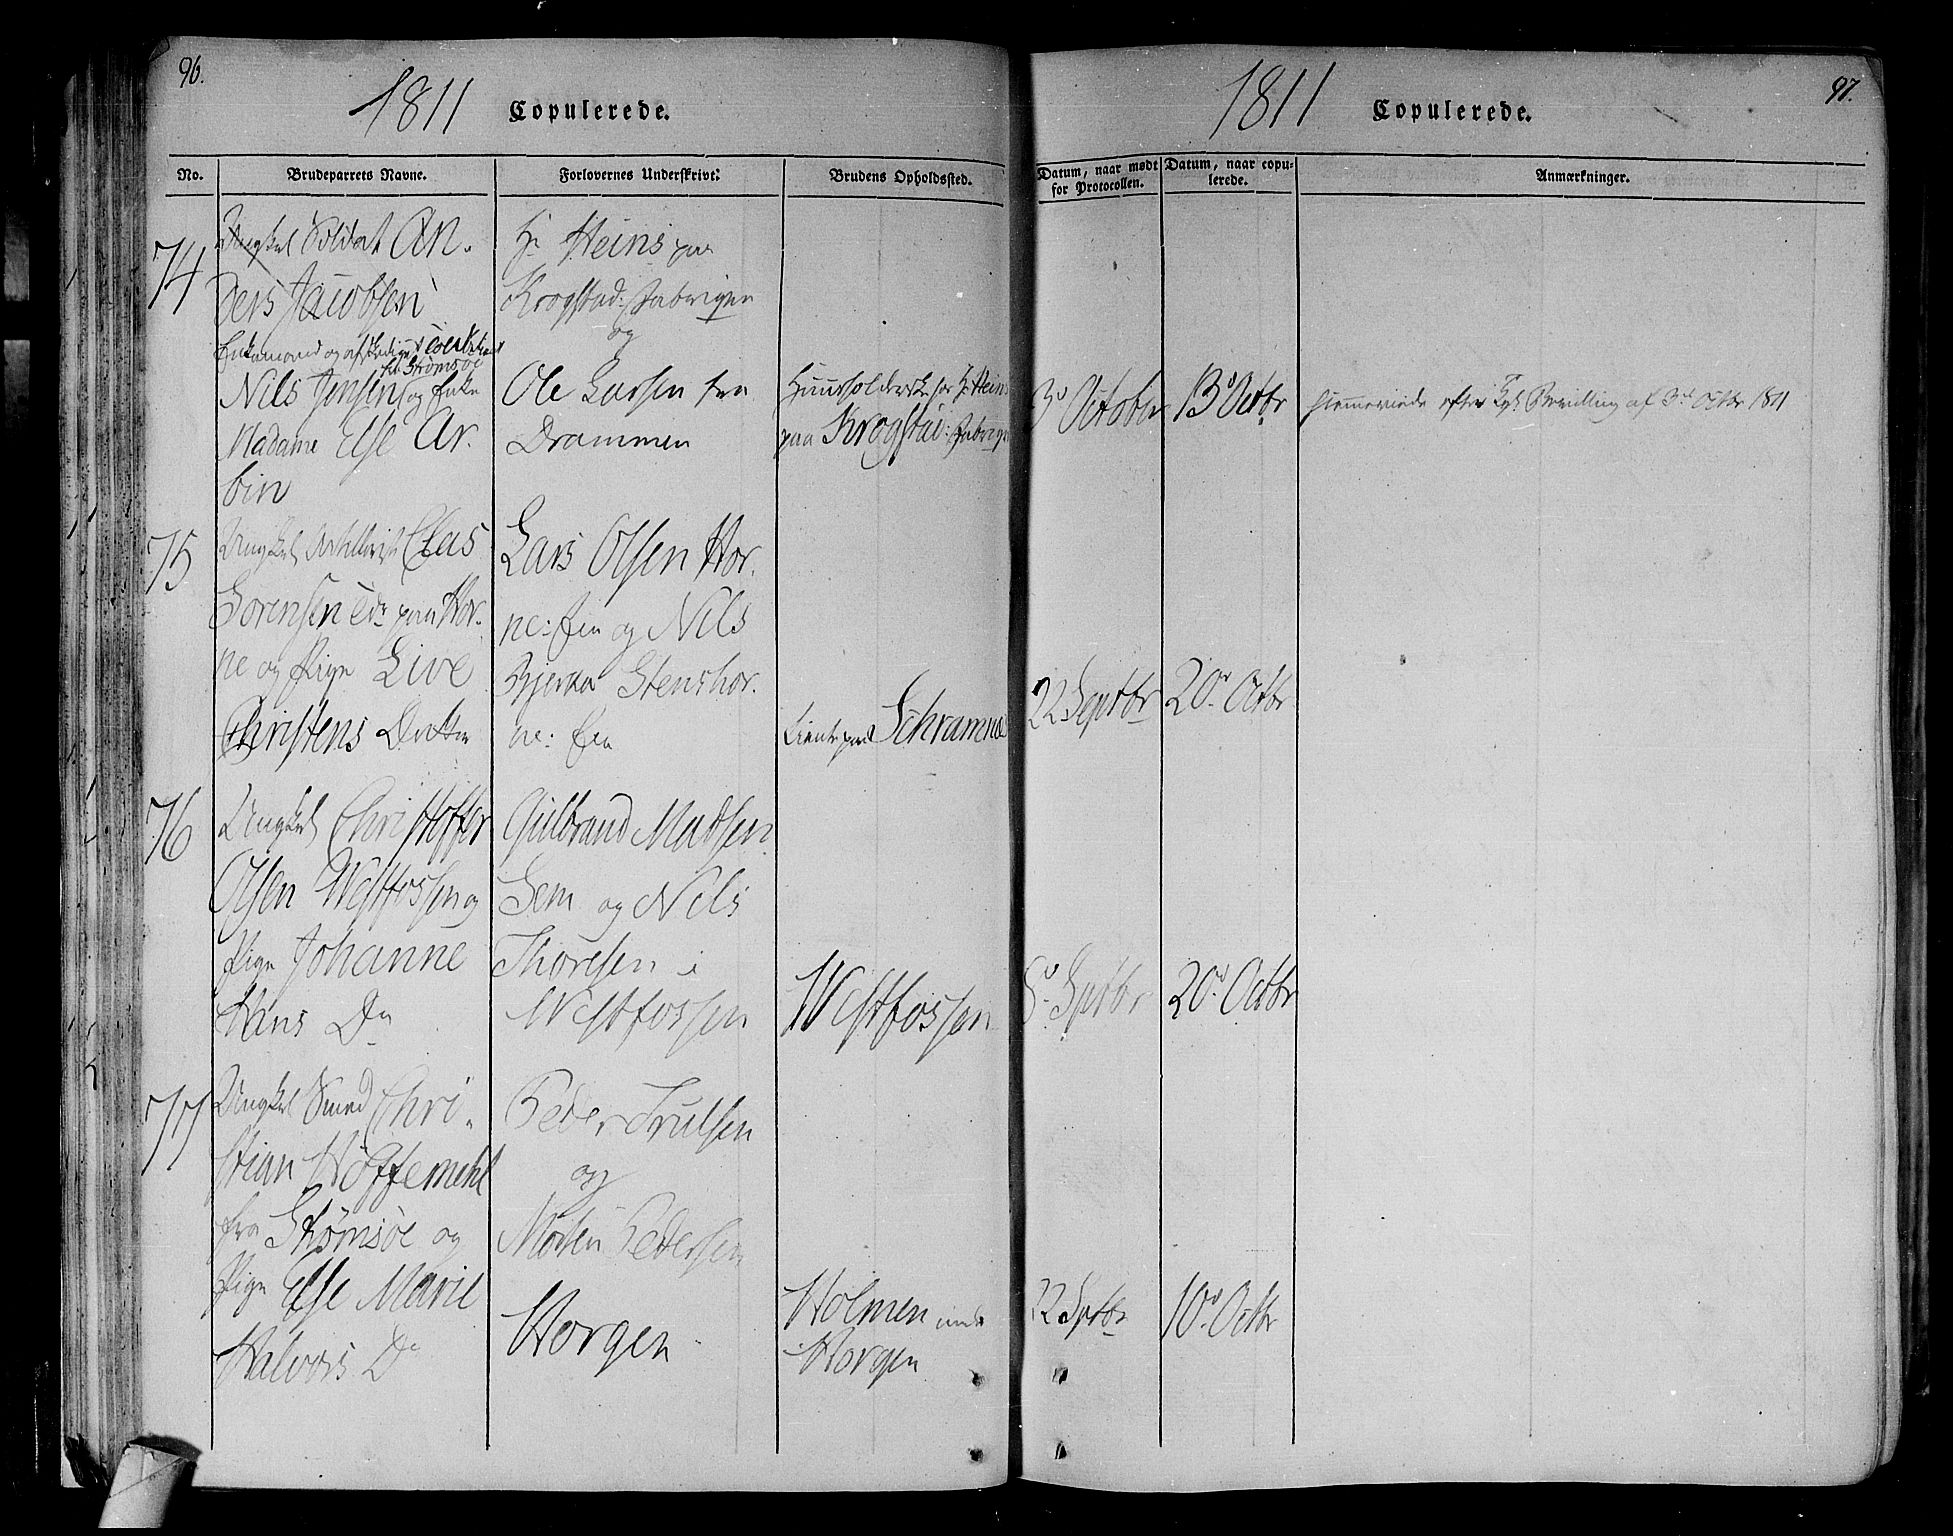 96.
1811 Copulerede.
No.
Brudeparrets Navne.
Forlovernes Underskrivt:
Brudens Opholdssted.
74
Ungkel Soldat An-
ders Jacobsen
Enkemand og afskediget
fra Strømsøe
Nils Jensen og Enke
Madame Else Ar-
bin
Hr Heins paa
Krogstad: Fabriqen
og
Ole Larsen fra
Drammen
Huusholderske hos Hr Heins
paa Krogstad: Fabriqen
75
Ungkel Artillerist Clas
Sørensen paa Hor-
ne og Pige Live
Christens Datter
Lars Olsen Hor-
ne: Eje og Nils
Stenshor-
ne: Eje
paa Schramnes
76
Ungkel Christoffer
Olsen Westfossen og
Pige Johanne
Hans Dr
Gulbrand Madsen
Sem og Nils
Thoresen i
Westfossen
Westfossen
77
Ungkel Smed Chri-
stian Hoffemehl
fra Strømsøe og
Pige Else Marie
Halvors Dr
Peder Trulsen
og
Morten Pedersen
Horgen
Holmen under
Horgen
97.
1811 Copulerede.
Datum, naar mødt
for Protocollen.
Datum, naar copu-
lerede.
Anmærkninger.
3d October
13d Octbr
Hiemmeviede efter Kgl Bevilling af 3die Octbr 1811
22 Septbr
20d Octbr
8d Septbr
20d Octbr
22 Septbr
10d Octbr